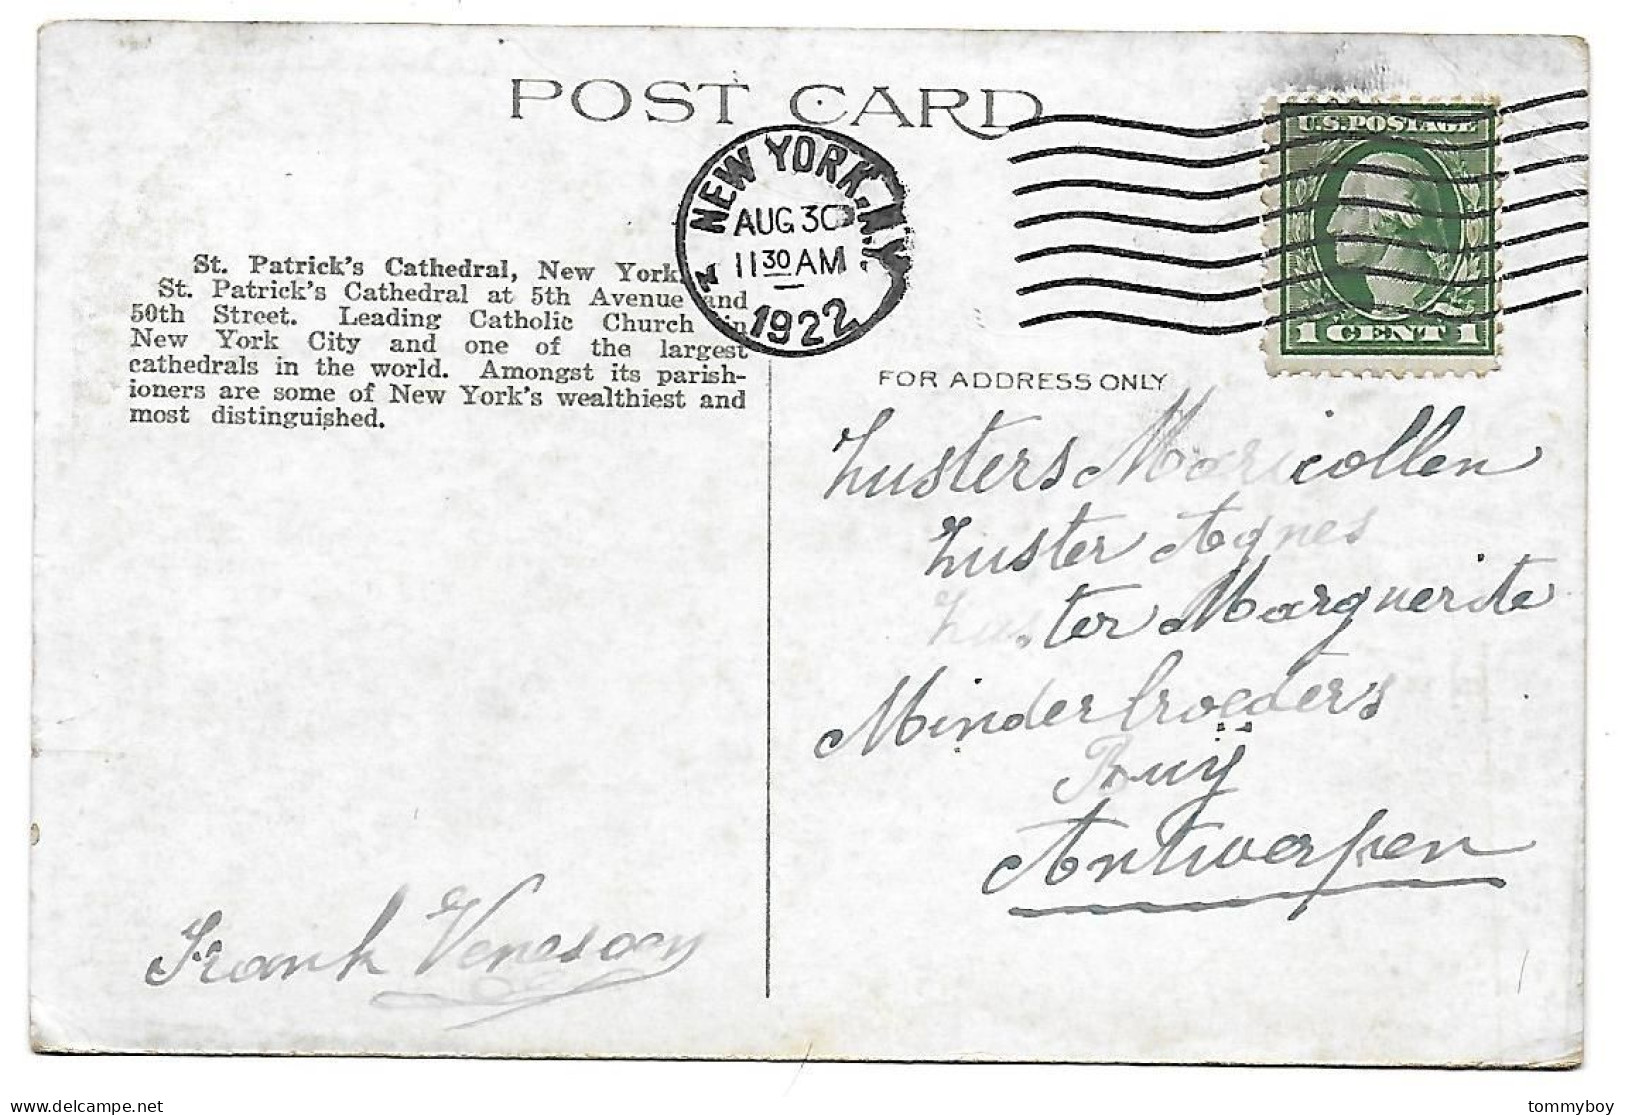 POST CARD
NEW YORK, N.Y.
AUG 30
11 30 AM
1922
U.S. POSTAGE
1 CENT 1
St. Patrick's Cathedral, New York.
St. Patrick's Cathedral at 5th Avenue and
50th Street. Leading Catholic Church in
New York City and one of the largest
cathedrals in the world. Amongst its parish-
ioners are some of New York's wealthiest and
most distinguished.
FOR ADDRESS ONLY
Zusters Maricollen
Zuster Agnes
Zuster Marguerite
Minderbroeders
Ruij
Antwerpen
Frank Venesoen
tommyboy